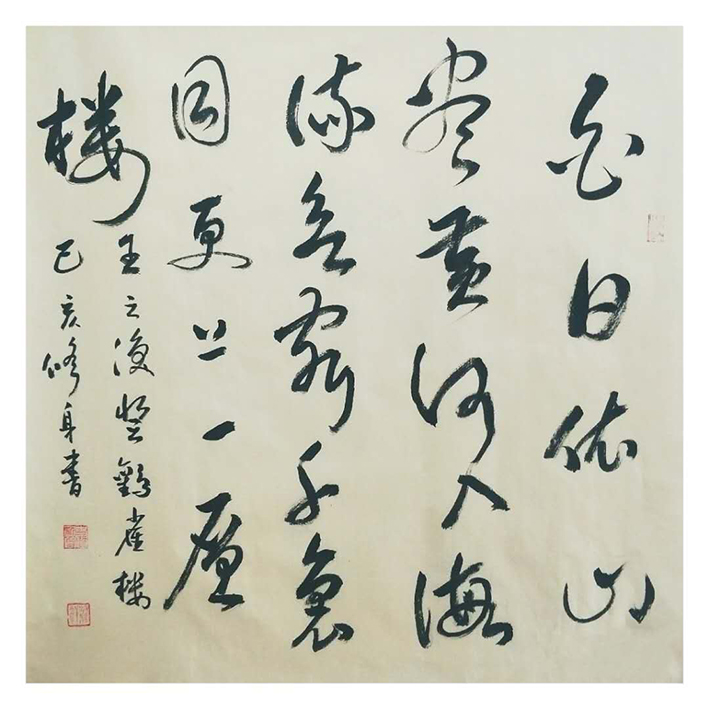 白日依山
尽黄河入海
流欲窮千裏
目更上一層
楼
王之涣登鸛雀楼
己亥修身書